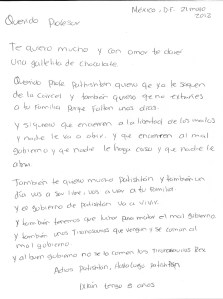 México, D.F. 21 mayo
2013
Querido Profesor
Te quiero mucho y con amor te daré
una galletita de chocolate
Querido Profe Patishtan quiero que ya te saquen
de la carcel y también quiero que no extrañes
a tu familia porque faltan unos días.
y si quiero que encierren a la libertad de los malos
y nadie le va a abrir. y que encierren al mal
gobierno y que nadie le haga caso y que nadie le
abra.
También te quiero mucho Patishtán y también un
día vas a ser libre. vas a ver a tu familia
y el gobierno de Patishtan va a vivir.
y también tenemos que luchar para matar el mal gobierno
y también unos Tiranosaurios que vengan y se coman al
mal gobierno
y al buen gobierno no se lo comen los Tiranosaurios Rex.
Adios Patishtán,
tengo 5 años